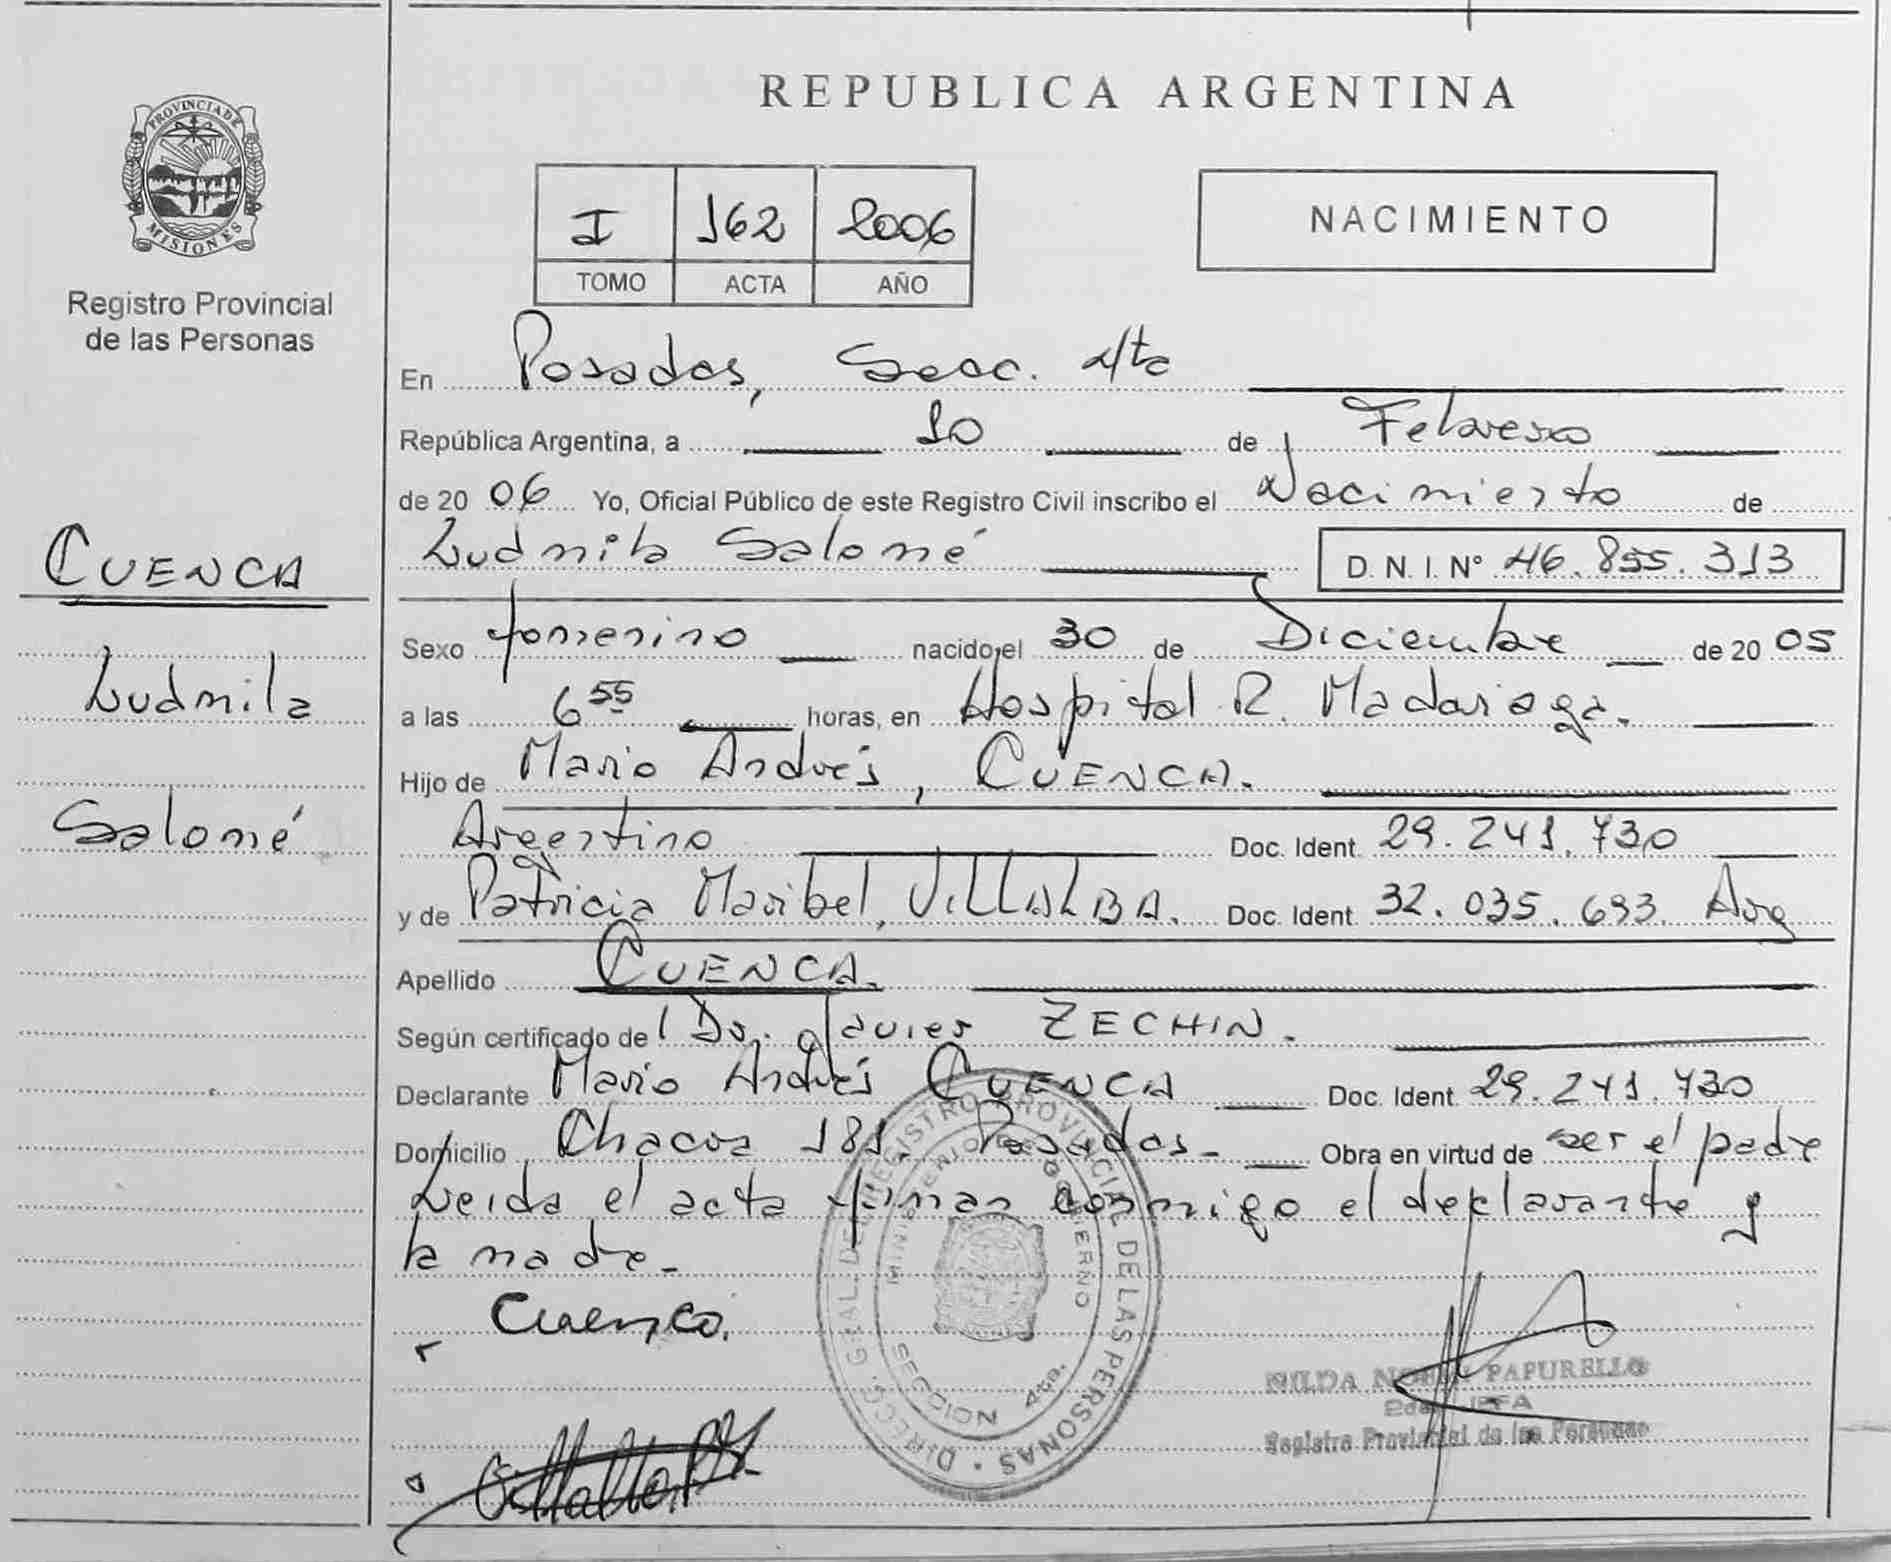 PROVINCIA DE
MISIONES
Registro Provincial
de las Personas
CUENCA
Ludmila
Salomé
REPUBLICA ARGENTINA
I 162 2006
TOMO ACTA AÑO
NACIMIENTO
En Posadas, Secc. 4ta
República Argentina, a 10 de Febrero
de 20 06 Yo, Oficial Público de este Registro Civil inscribo el Nacimiento de
Ludmila Salomé D.N.I. Nº 46.855.313
Sexo femenino nacido el 30 de Diciembre de 20 05
a las 6 55 horas, en Hospital R. Madariaga.
Hijo de Mario Andrés, CUENCA.
Argentino Doc. Ident. 29.241.730
y de Patricia Maribel, VILLALBA. Doc. Ident. 32.035.693. Arg
Apellido CUENCA.
Según certificado de Dr. Javier ZECHIN.
Declarante Mario Andrés CUENCA Doc. Ident. 29.241.730
Domicilio Chacra 181. Posadas- Obra en virtud de ser el padre
Leida el acta firman conmigo el declarante y
la madre.-
Cuenca.
DIRECC. GRAL. DEL REGISTRO PROVINCIAL DE LAS PERSONAS
MINISTERIO DE GOBIERNO
SECCION 4ta.
PAPURELLO
JEFA
Registro Provincial de las Personas